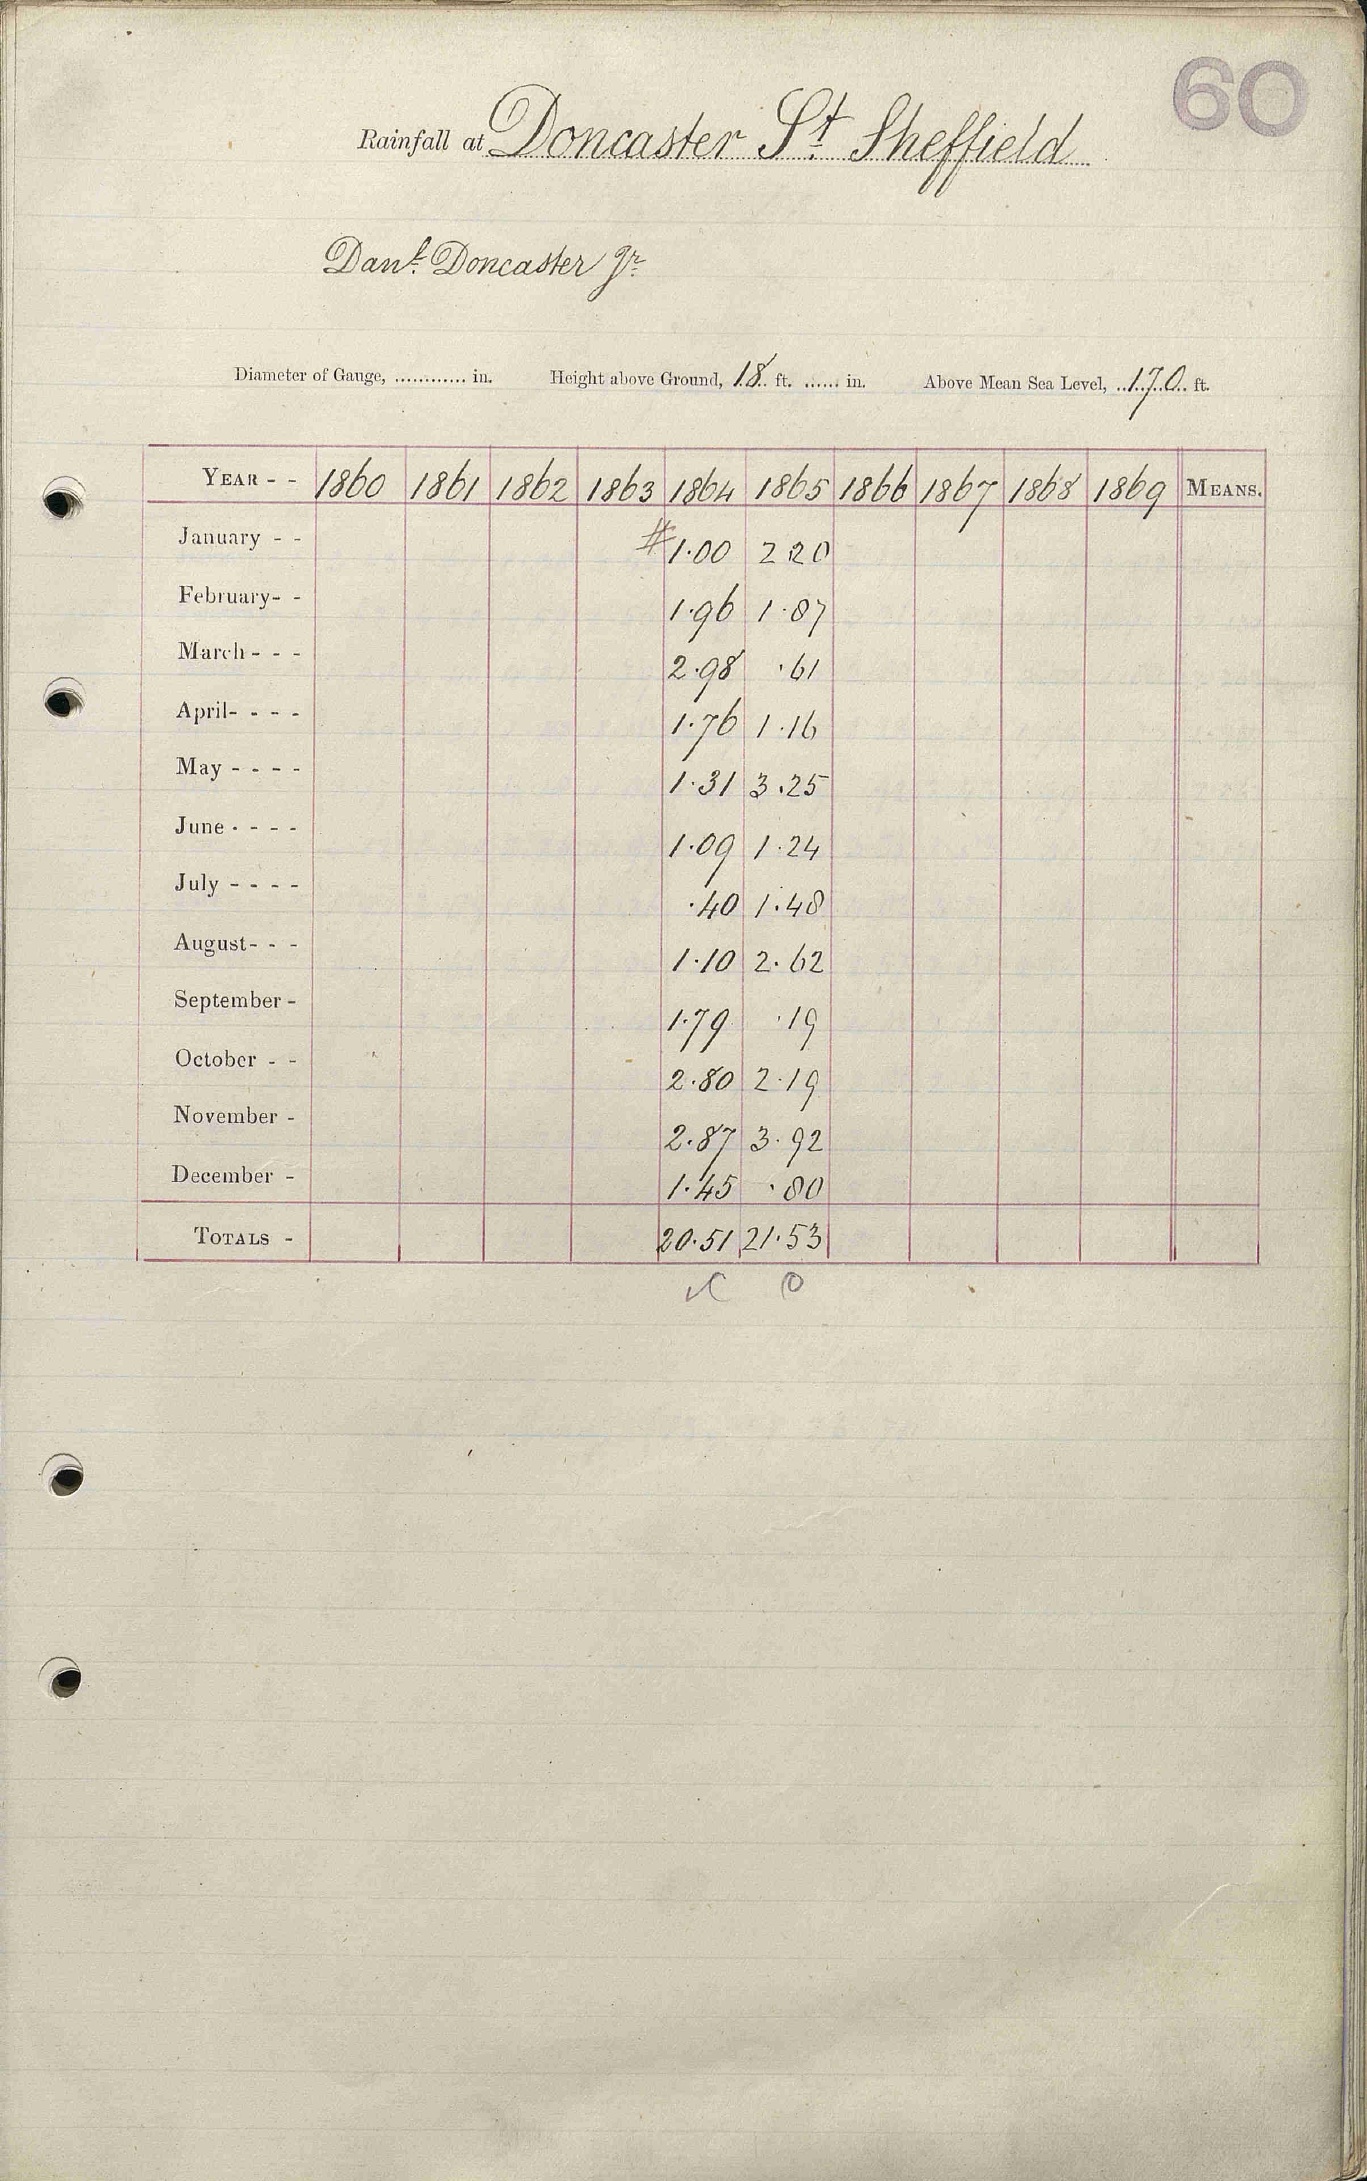 60
Rainfall at Doncaster St. Sheffield
Danl. Doncaster Jr.
Diameter of Gauge, ............ in. Height above Ground, 18 ft. ...... in. Above Mean Sea Level, 170 ft.
YEAR - - 1860 1861 1862 1863 1864 1865 1866 1867 1868 1869 MEANS.
January - - #1.00 2.20
February - - 1.96 1.87
March - - - 2.98 .61
April - - - - 1.76 1.16
May - - - - 1.31 3.25
June - - - - 1.09 1.24
July - - - - .40 1.48
August - - - 1.10 2.62
September - 1.79 .19
October - - 2.80 2.19
November - 2.87 3.92
December - 1.45 .80
TOTALS - 20.51 21.53